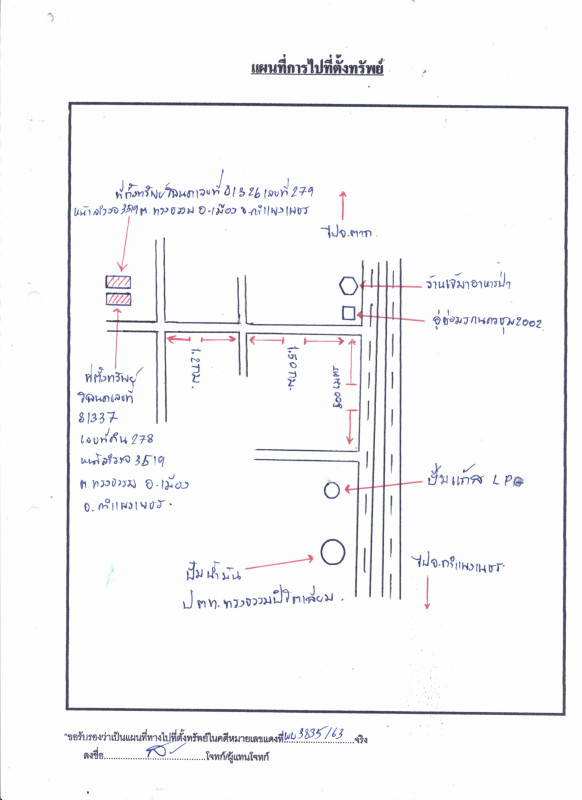 แผนที่การไปที่ตั้งทรัพย์
ที่ตั้งทรัพย์โฉนดเลขที่ 81326 เลขที่ 279
หน้าสำรวจ 3519 ต.ทรงธรรม อ.เมือง จ.กำแพงเพชร
ไปจ.ตาก
ร้านเจ๊มาอาหารป่า
อู่ซ่อมรถนครชุม 2002
1.2 กม.
1.50 กม.
ที่ตั้งทรัพย์
โฉนดเลขที่
81337
เลขที่ดิน 278
หน้าสำรวจ 3519
ต.ทรงธรรม อ.เมือง
จ.กำแพงเพชร
ปั๊มแก๊ส LPG
ปั๊มน้ำมัน
ป ต ท. ทรงธรรมปิโตเลียม
ไปจ.กำแพงเพชร
"ขอรับรองว่าเป็นแผนที่ทางไปที่ตั้งทรัพย์ในคดีหมายเลขแดงที่ ผบ 3835/63 จริง
ลงชื่อ โจทก์/ผู้แทนโจทก์